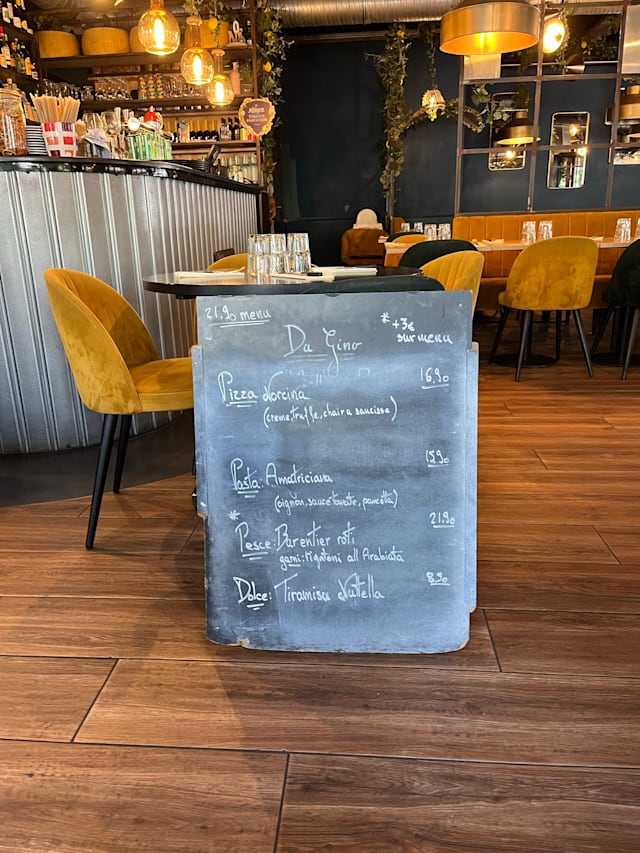 21.90 menu
*+3€
sur menu
Da Gino
Pizza Norcina
16.90
(creme, truffe, chair a saucisse)
15.90
Pasta: Amatriciana
(oignon, sauce tomate, pancetta)
21.90
* Pesce: Bar entier roti
garni: rigatoni all Arabiata
Dolce: Tiramisu Nutella
8.90